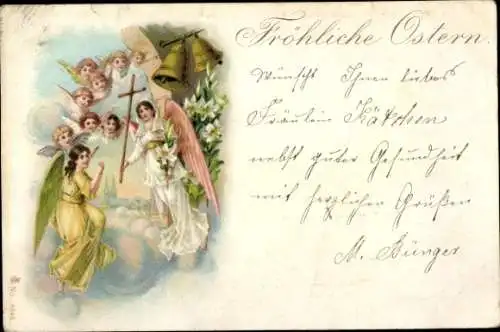 Fröhliche Ostern.
Wünscht Ihnen liebes
Fräulein Kätchen
nebst guter Gesundheit
mit herzlichen Grüßen
M. Bünger
No.